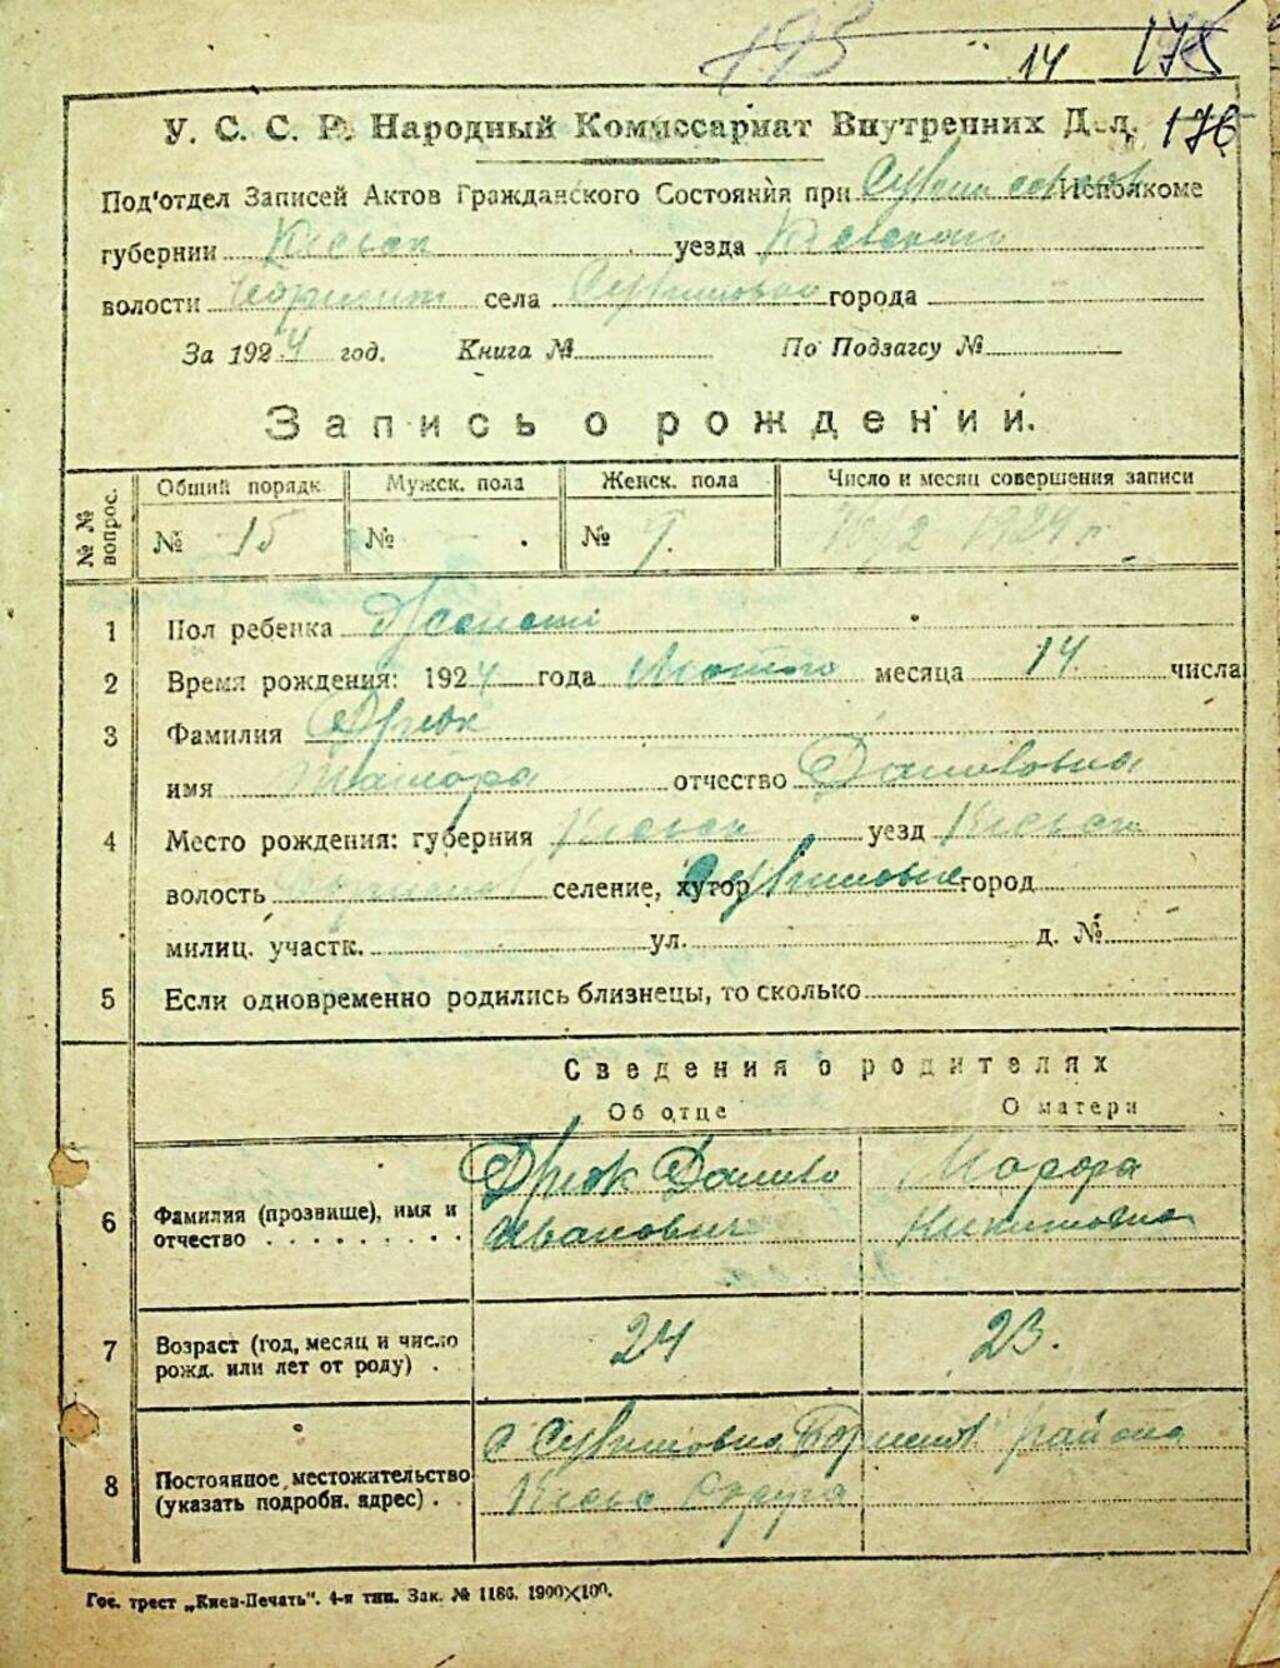 195 14 175
У. С. С. Р. Народный Комиссариат Внутренних Дел. 176
Под'отдел Записей Актов Гражданского Состояния при Исполкоме
губернии Киевск уезда Киевского
волости села города
За 1924 год. Книга № По Подзагсу №
Запись о рождении.
№№ вопрос. Общий порядк. Мужск. пола Женск. пола Число и месяц совершения записи
№ 15 № № 7. 16/2 1924 г.
1 Пол ребенка
2 Время рождения: 1924 года Лютого месяца 14 числа
3 Фамилия
имя отчество Даниловна
4 Место рождения: губерния Киевск уезд Киевск
волость селение, хутор город
милиц. участк. ул. д. №
5 Если одновременно родились близнецы, то сколько
Сведения о родителях
Об отце О матери
6 Фамилия (прозвище), имя и отчество Данило Иванович Никитовна
7 Возраст (год, месяц и число рожд. или лет от роду) 24 23.
8 Постоянное местожительство (указать подробн. адрес) района
Округа
Гос. трест „Киев-Печать“. 4-я тип. Зак. № 1186. 1900×100.